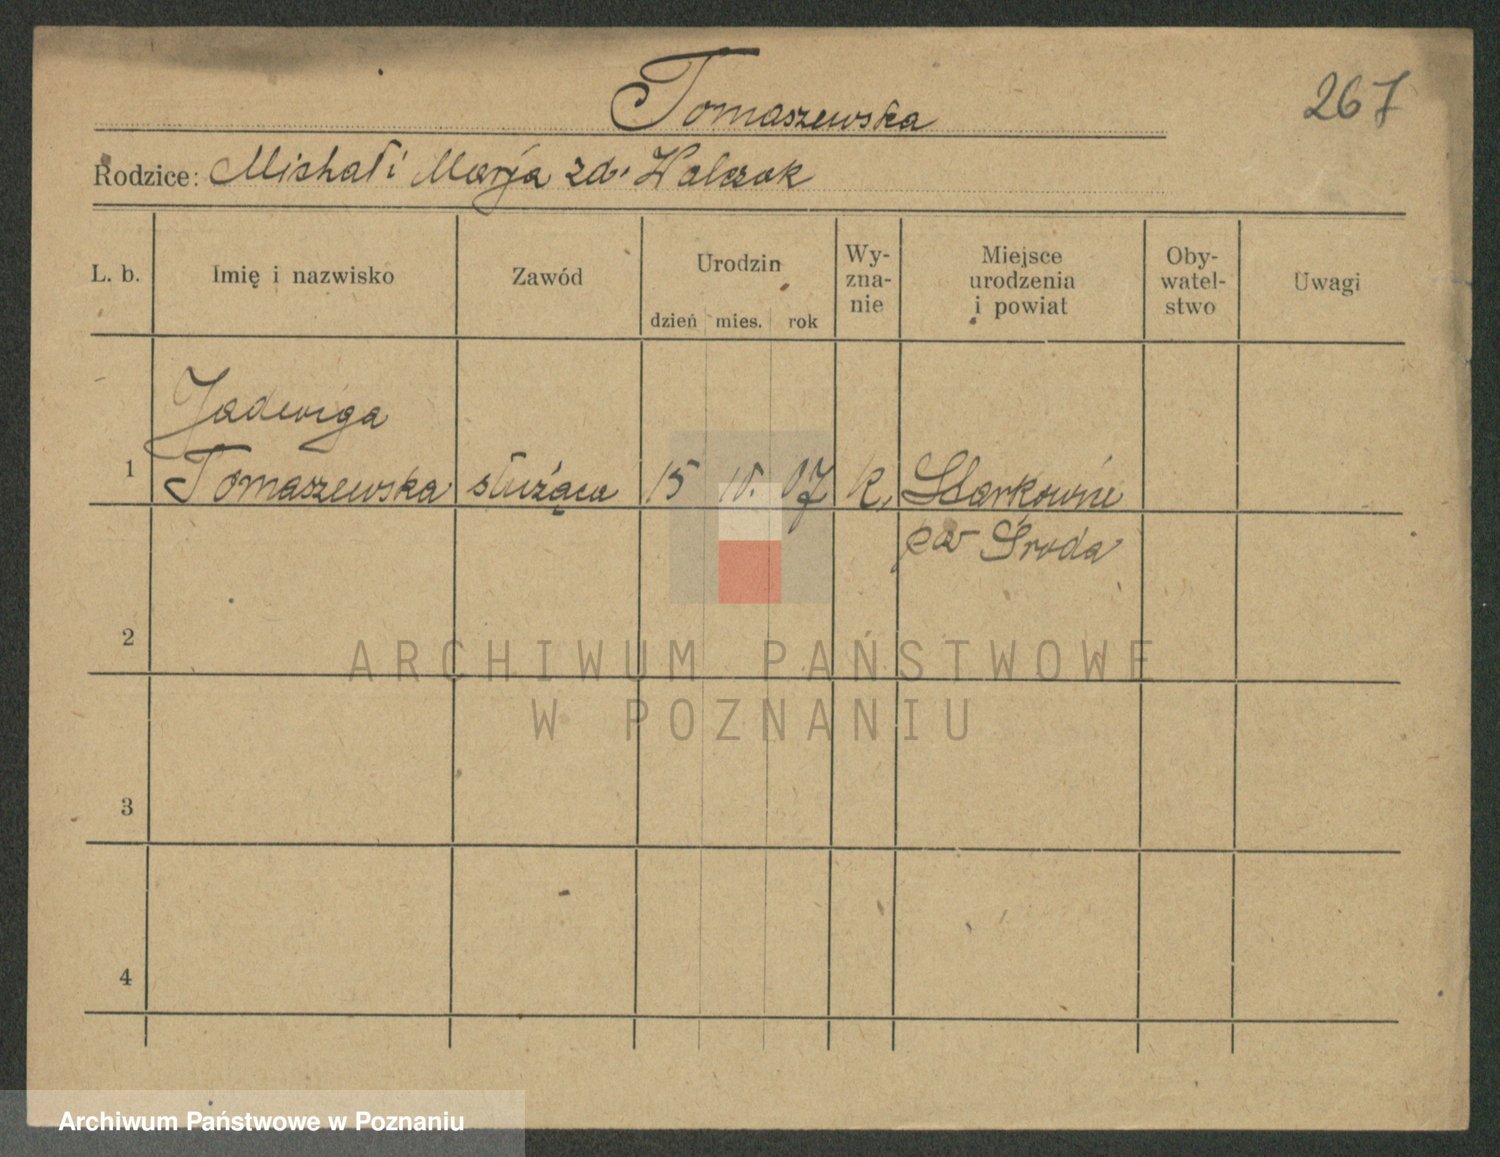 Tomaszewska
267
Rodzice: Michał i Marja zd. Walczak
L. b.
Imię i nazwisko
Zawód
Urodzin
dzień mies. rok
Wy-
zna-
nie
Miejsce
urodzenia
i powiat
Oby-
watel-
stwo
Uwagi
Jadwiga
1 Tomaszewska służąca 15 10. 07 k.
pow Środa
2
3
4
ARCHIWUM PAŃSTWOWE
W POZNANIU
Archiwum Państwowe w Poznaniu